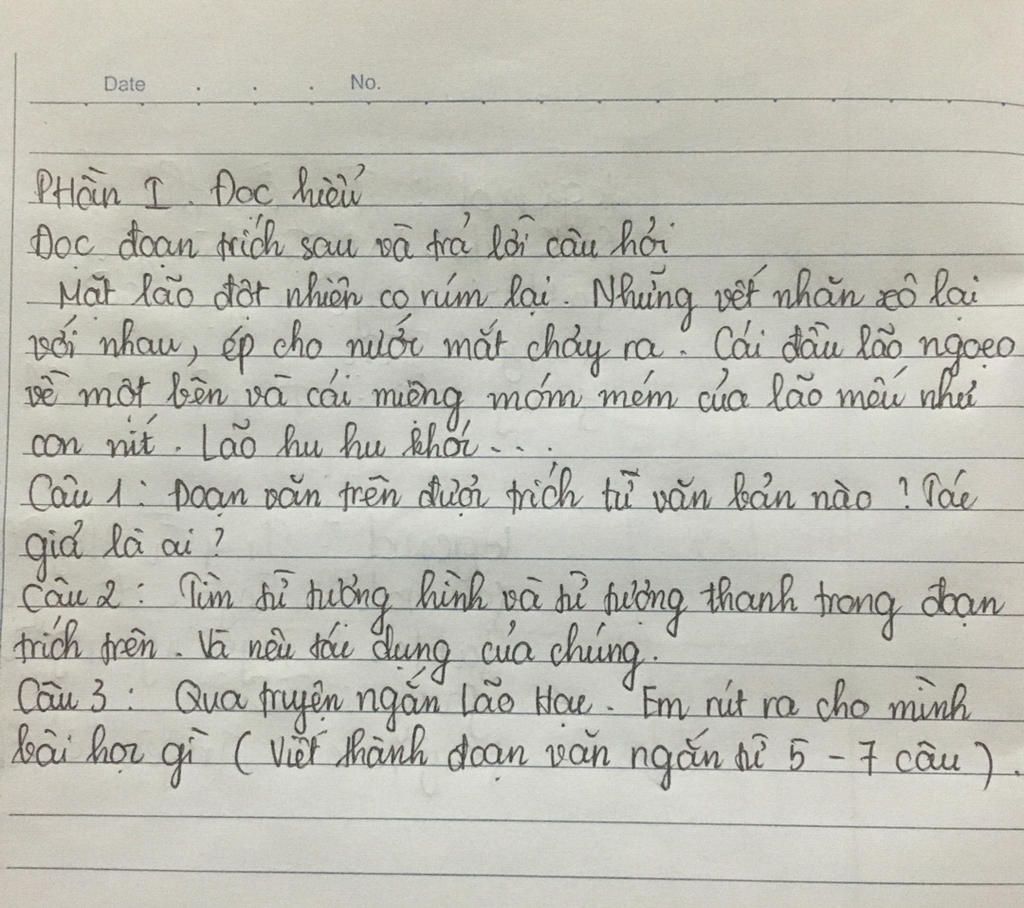 Date . . . No.
PHần I. Đọc hiểu
Đọc đoạn trích sau và trả lời câu hỏi
Mặt lão đột nhiên co rúm lại. Những vết nhăn xô lại
với nhau, ép cho nước mắt chảy ra. Cái đầu lão ngoẹo
về một bên và cái miệng móm mém của lão mếu như
con nít. Lão hu hu khóc...
Câu 1: Đoạn văn trên được trích từ văn bản nào? Tác
giả là ai?
Câu 2: Tìm từ tượng hình và từ tượng thanh trong đoạn
trích trên. Và nêu tác dụng của chúng.
Câu 3: Qua truyện ngắn Lão Hạc. Em rút ra cho mình
bài học gì (Viết thành đoạn văn ngắn từ 5 - 7 câu).